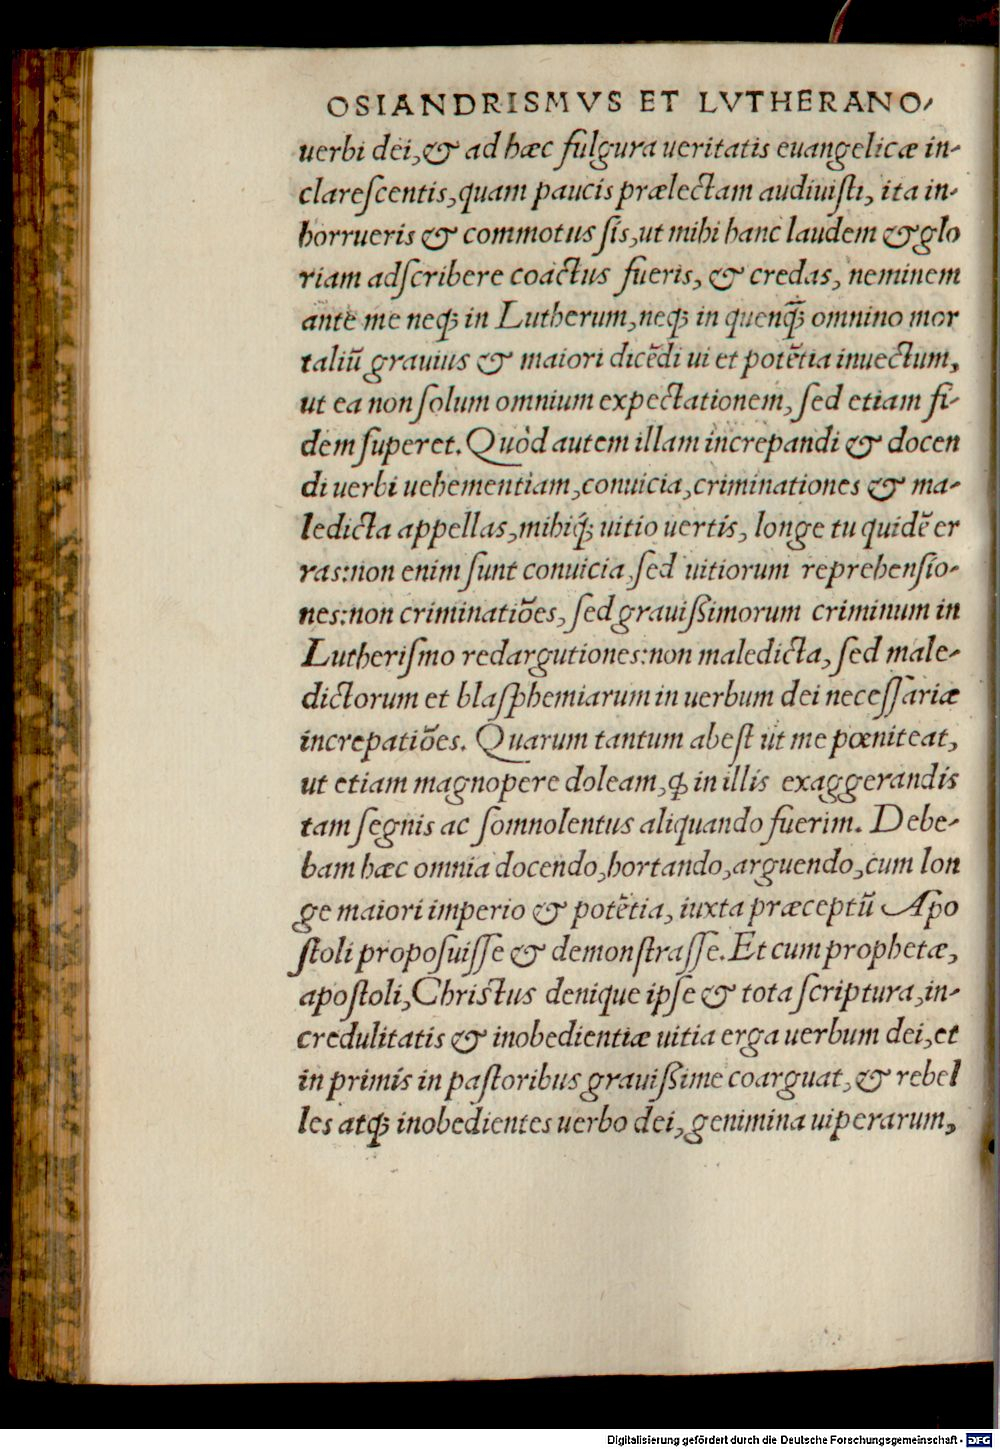 OSIANDRISMVS ET LVTHERANO-
uerbi dei, & ad hæc fulgura ueritatis euangelicæ in-
clareſcentis, quam paucis prælectam audiuiſti, ita in-
horrueris & commotus ſis, ut mihi hanc laudem & glo
riam adſcribere coactus fueris, & credas, neminem
ante me neq; in Lutherum, neq; in quenq̃ omnino mor
taliũ grauius & maiori dicẽdi ui et potẽtia inuectum,
ut ea non ſolum omnium expectationem, ſed etiam fi-
dem ſuperet. Quòd autem illam increpandi & docen
di uerbi uehementiam, conuicia, criminationes & ma-
ledicta appellas, mihiq́; uitio uertis, longe tu quidẽ er
ras: non enim ſunt conuicia, ſed uitiorum reprehenſio-
nes: non criminatiões, ſed grauißimorum criminum in
Lutheriſmo redargutiones: non maledicta, ſed male-
dictorum et blaſphemiarum in uerbum dei neceſſariæ
increpatiões. Quarum tantum abeſt ut me pœniteat,
ut etiam magnopere doleam, ꝙ in illis exaggerandis
tam ſegnis ac ſomnolentus aliquando fuerim. Debe-
bam hæc omnia docendo, hortando, arguendo, cum lon
ge maiori imperio & potẽtia, iuxta præceptũ Apo
ſtoli propoſuiſſe & demonſtraſſe. Et cum prophetæ,
apoſtoli, Chriſtus denique ipſe & tota ſcriptura, in-
credulitatis & inobedientiæ uitia erga uerbum dei, et
in primis in paſtoribus grauißime coarguat, & rebel
les atq; inobedientes uerbo dei, genimina uiperarum,
Digitalisierung gefördert durch die Deutsche Forschungsgemeinschaft - DFG